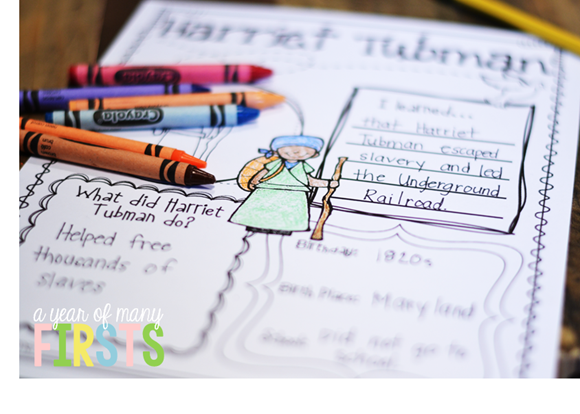 Harriet Tubman
Crayola
Crayola
I learned...
that Harriet
Tubman escaped
slavery and led
the Underground
Railroad.
What did Harriet
Tubman do?
Helped free
thousands of
slaves
Birthday: 1820s
Birth Place: Maryland
did not go to
school
a year of many
FIRSTS